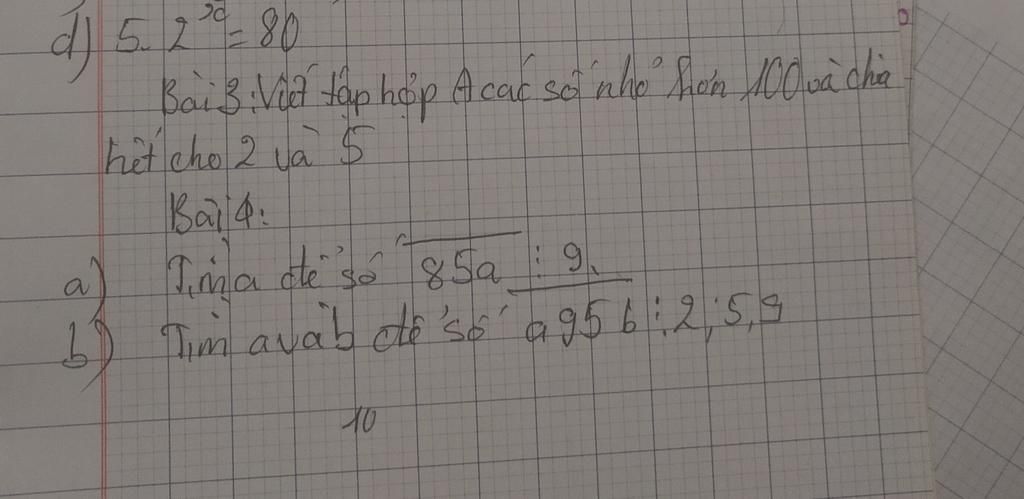 d) 5. 2^x = 80
Bài 3: Viết tập hợp A các số nhỏ hơn 100 và chia
hết cho 2 và 5
Bài 4:
a) Tìm a để số 85a ⋮ 9.
b) Tìm a và b để số a956 ⋮ 2; 5, 9
10